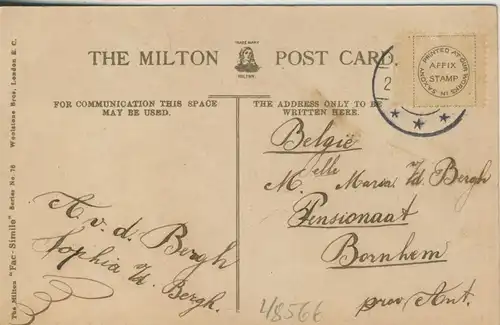 THE MILTON POST CARD.
TRADE MARK
MILTON.
PRINTED AT OUR WORKS IN SAXONY
AFFIX
STAMP
2
FOR COMMUNICATION THIS SPACE
MAY BE USED.
THE ADDRESS ONLY TO BE
WRITTEN HERE.
The Milton "Fac-Simile" Series No. 78 Woolstone Bros., London E. C.
A. v. d. Bergh
Sophia v/d. Bergh.
België
M.elle Maria v/d. Bergh
Pensionaat
Bornhem
prov. Ant.
48566